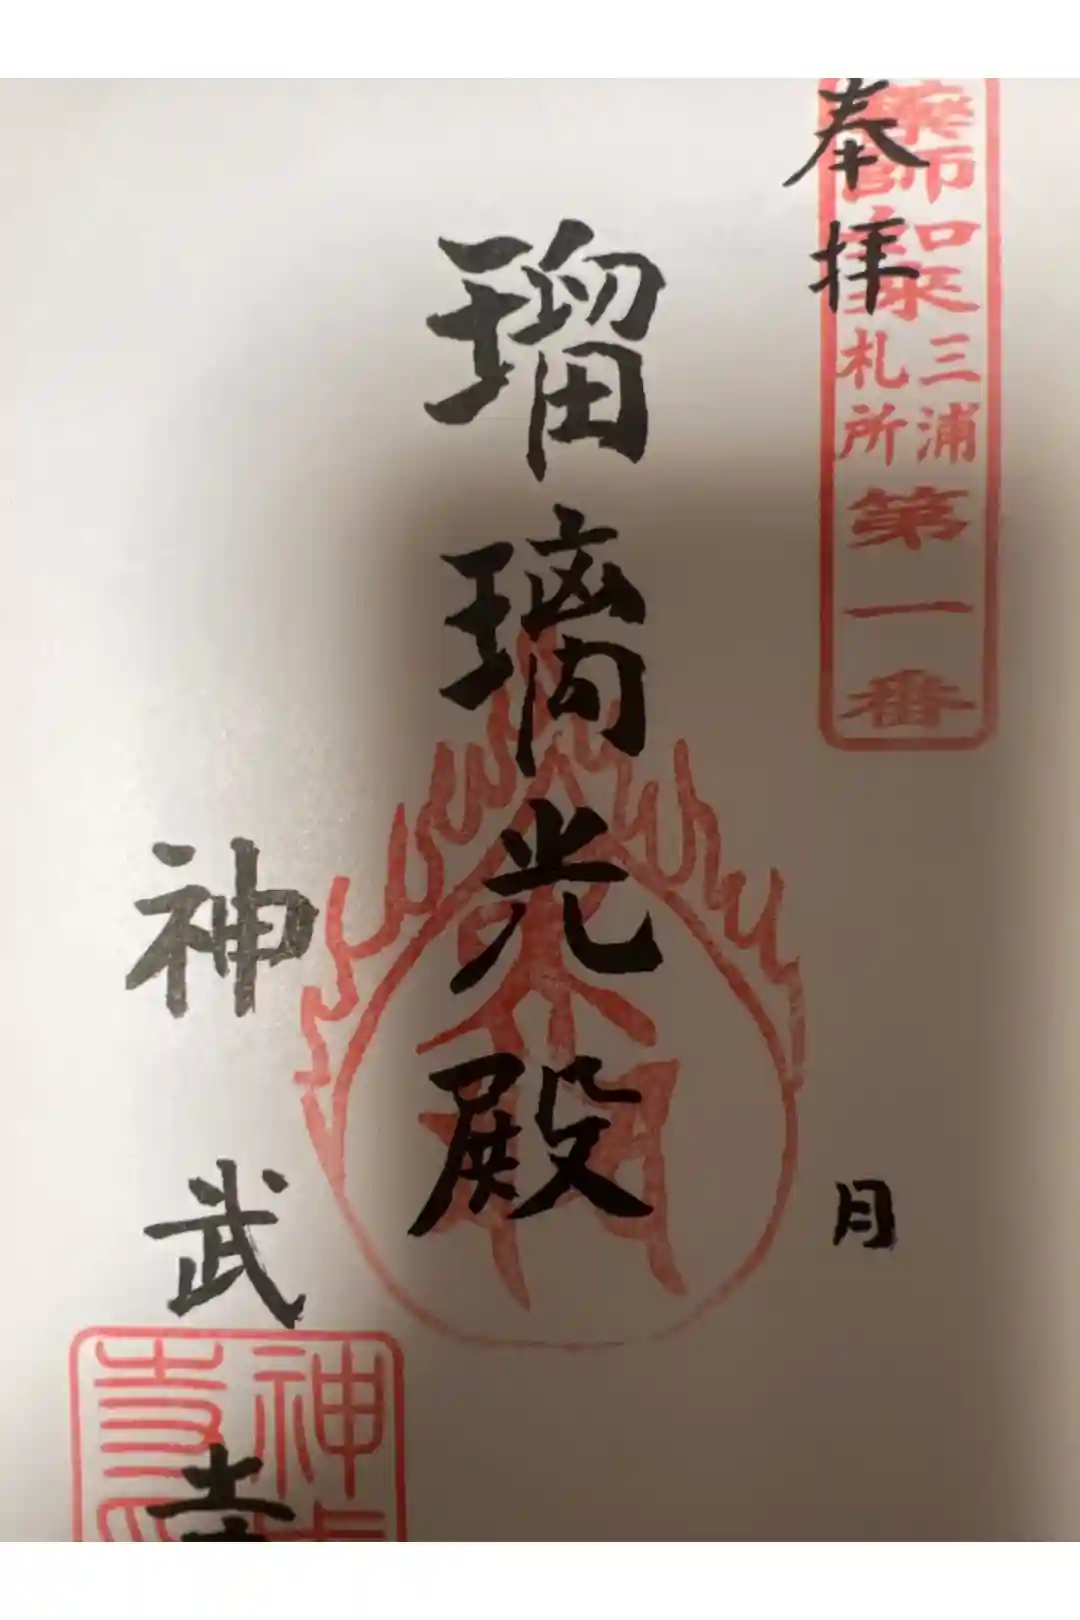 奉拝
薬師如来
霊場
三浦
札所
第一番
月
瑠璃光殿
神武寺
神武
寺印